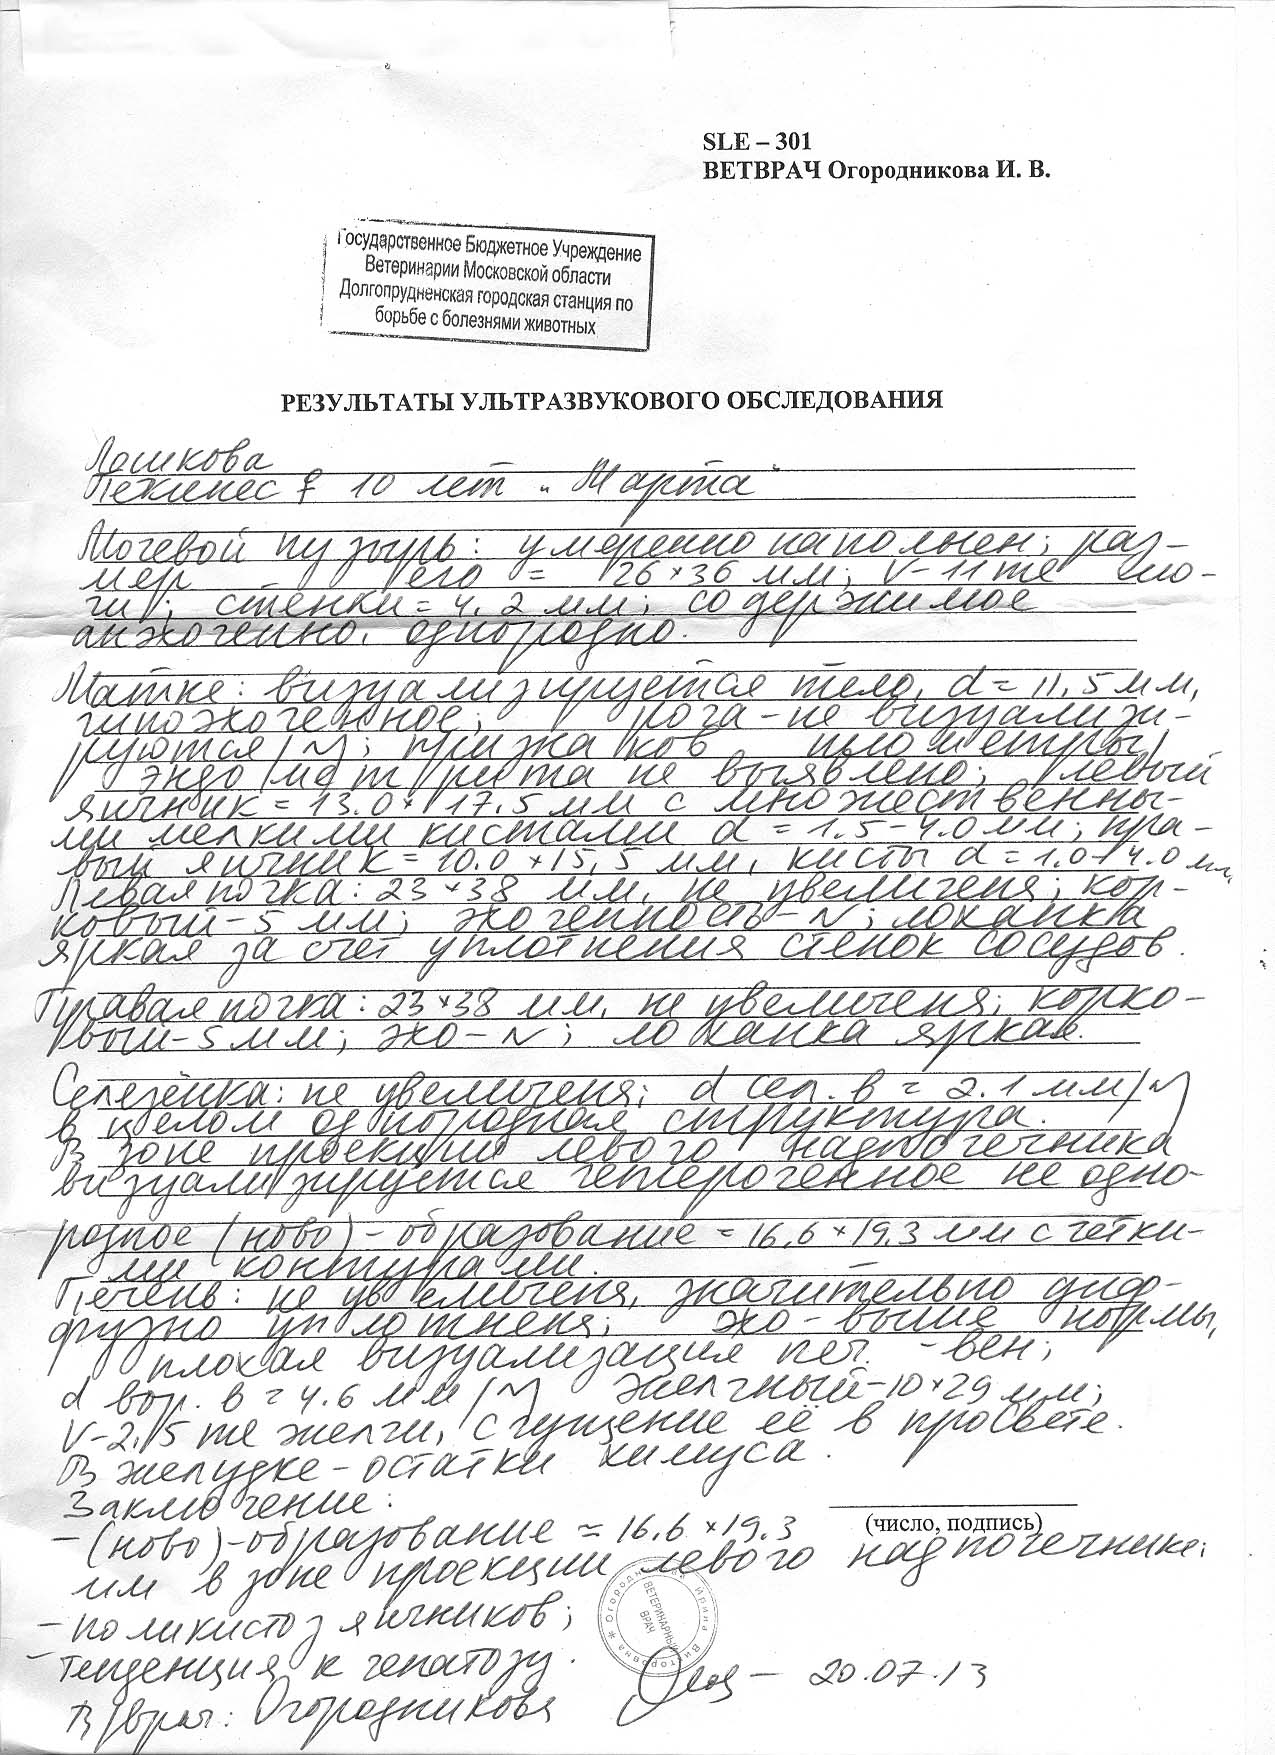 SLE – 301
ВЕТВРАЧ Огородникова И. В.
Государственное Бюджетное Учреждение
Ветеринарии Московской области
Долгопрудненская городская станция по
борьбе с болезнями животных
РЕЗУЛЬТАТЫ УЛЬТРАЗВУКОВОГО ОБСЛЕДОВАНИЯ
Пекинес ♀ 10 лет „Марта"
Мочевой пузырь: умеренно наполнен; раз-
мер его = 26×36 мм; V-11 мл мо-
чи; стенки = 4.2 мм; содержимое
анэхогенно, однородно.
Матка: визуализируется тело, d = 11,5 мм,
гипоэхогенное; рога - не визуализи-
руются/N; признаков пиометры/
эндометрита не выявлено; левый
яичник = 13.0 × 17.5 мм с множественны-
ми мелкими кистами d = 1.5-4.0 мм; пра-
вый яичник = 10.0 × 15,5 мм, кисты d = 1.0-4.0 мм.
Левая почка: 23×38 мм, не увеличена; кор-
ковый - 5 мм; эхогенность - N; лоханка
яркая за счёт уплотнения стенок сосудов.
Правая почка: 23×38 мм, не увеличена; корко-
вый - 5 мм; эхо - N; лоханка яркая.
Селезёнка: не увеличена; d сел. в = 2.1 мм/N
в целом однородная структура.
В зоне проекции левого надпочечника
визуализируется гетерогенное неодно-
родное (ново)-образование = 16,6 × 19.3 мм с чётки-
ми контурами.
Печень: не увеличена, значительно диф-
фузно уплотнена; эхо - выше нормы,
плохая визуализация печ. - вен;
d вор. в = 4.6 мм/N желчный - 10×29 мм;
V - 2,15 мл желчи, сгущение её в просвете.
В желудке - остатки химуса.
Заключение:
(число, подпись)
- (ново)-образование = 16.6 × 19.3
мм в зоне проекции левого надпочечника;
- поликистоз яичников;
- тенденция к гепатозу.
20.07.13
В/врач: Огородникова
Огородникова Ирина Викторовна *
ВЕТЕРИНАРНЫЙ
ВРАЧ